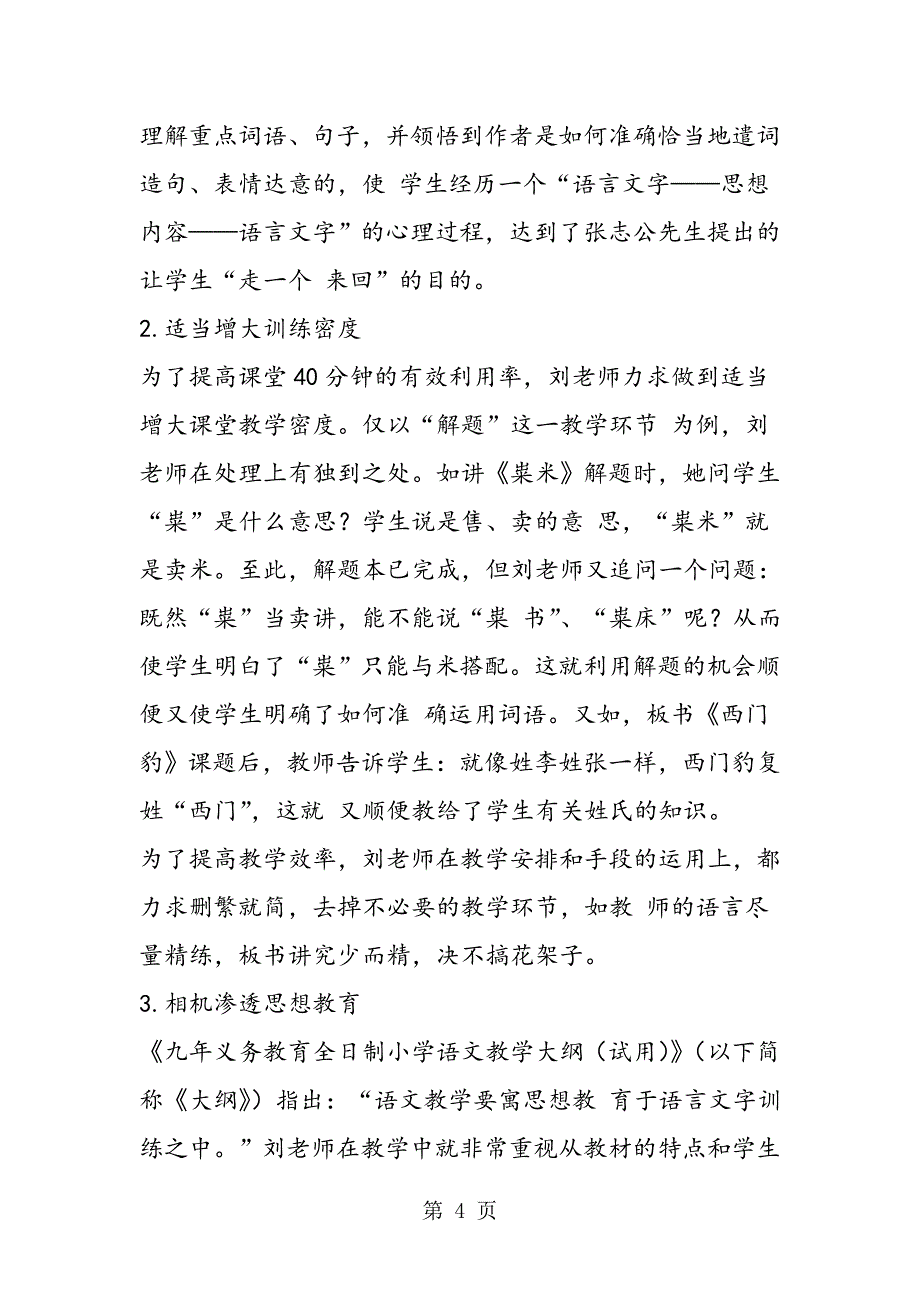 理解重点词语、句子，并领悟到作者是如何准确恰当地遣词
造句、表情达意的，使 学生经历一个“语言文字——思想
内容——语言文字”的心理过程，达到了张志公先生提出的
让学生“走一个 来回”的目的。
2.适当增大训练密度
为了提高课堂 40 分钟的有效利用率，刘老师力求做到适当
增大课堂教学密度。仅以“解题”这一教学环节 为例，刘
老师在处理上有独到之处。如讲《粜米》解题时，她问学生
“粜”是什么意思？学生说是售、卖的意 思，“粜米”就
是卖米。至此，解题本已完成，但刘老师又追问一个问题：
既然“粜”当卖讲，能不能说“粜 书”、“粜床”呢？从而
使学生明白了“粜”只能与米搭配。这就利用解题的机会顺
便又使学生明确了如何准 确运用词语。又如，板书《西门
豹》课题后，教师告诉学生：就像姓李姓张一样，西门豹复
姓“西门”，这就 又顺便教给了学生有关姓氏的知识。
为了提高教学效率，刘老师在教学安排和手段的运用上，都
力求删繁就简，去掉不必要的教学环节，如教 师的语言尽
量精练，板书讲究少而精，决不搞花架子。
3.相机渗透思想教育
《九年义务教育全日制小学语文教学大纲（试用）》（以下简
称《大纲》）指出：“语文教学要寓思想教 育于语言文字训
练之中。”刘老师在教学中就非常重视从教材的特点和学生
第 4 页